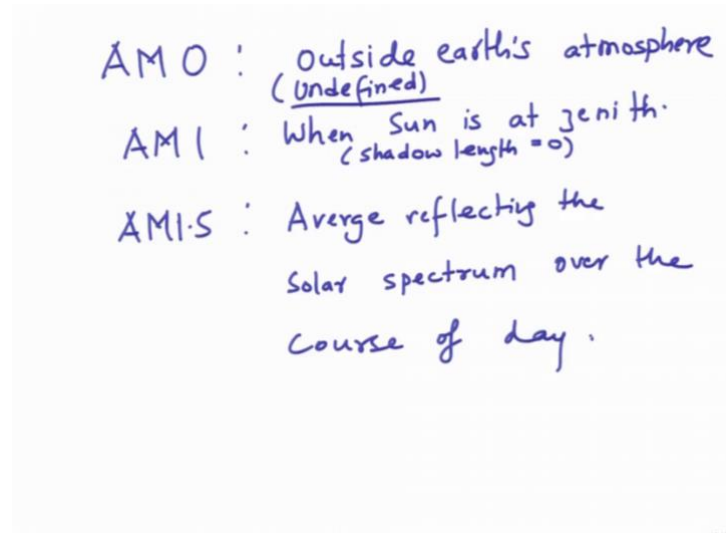 AM0 : Outside earth's atmosphere
(Undefined)
AM1 : When Sun is at zenith.
(shadow length = 0)
AM1.5 : Averge reflecting the
Solar spectrum over the
Course of day.